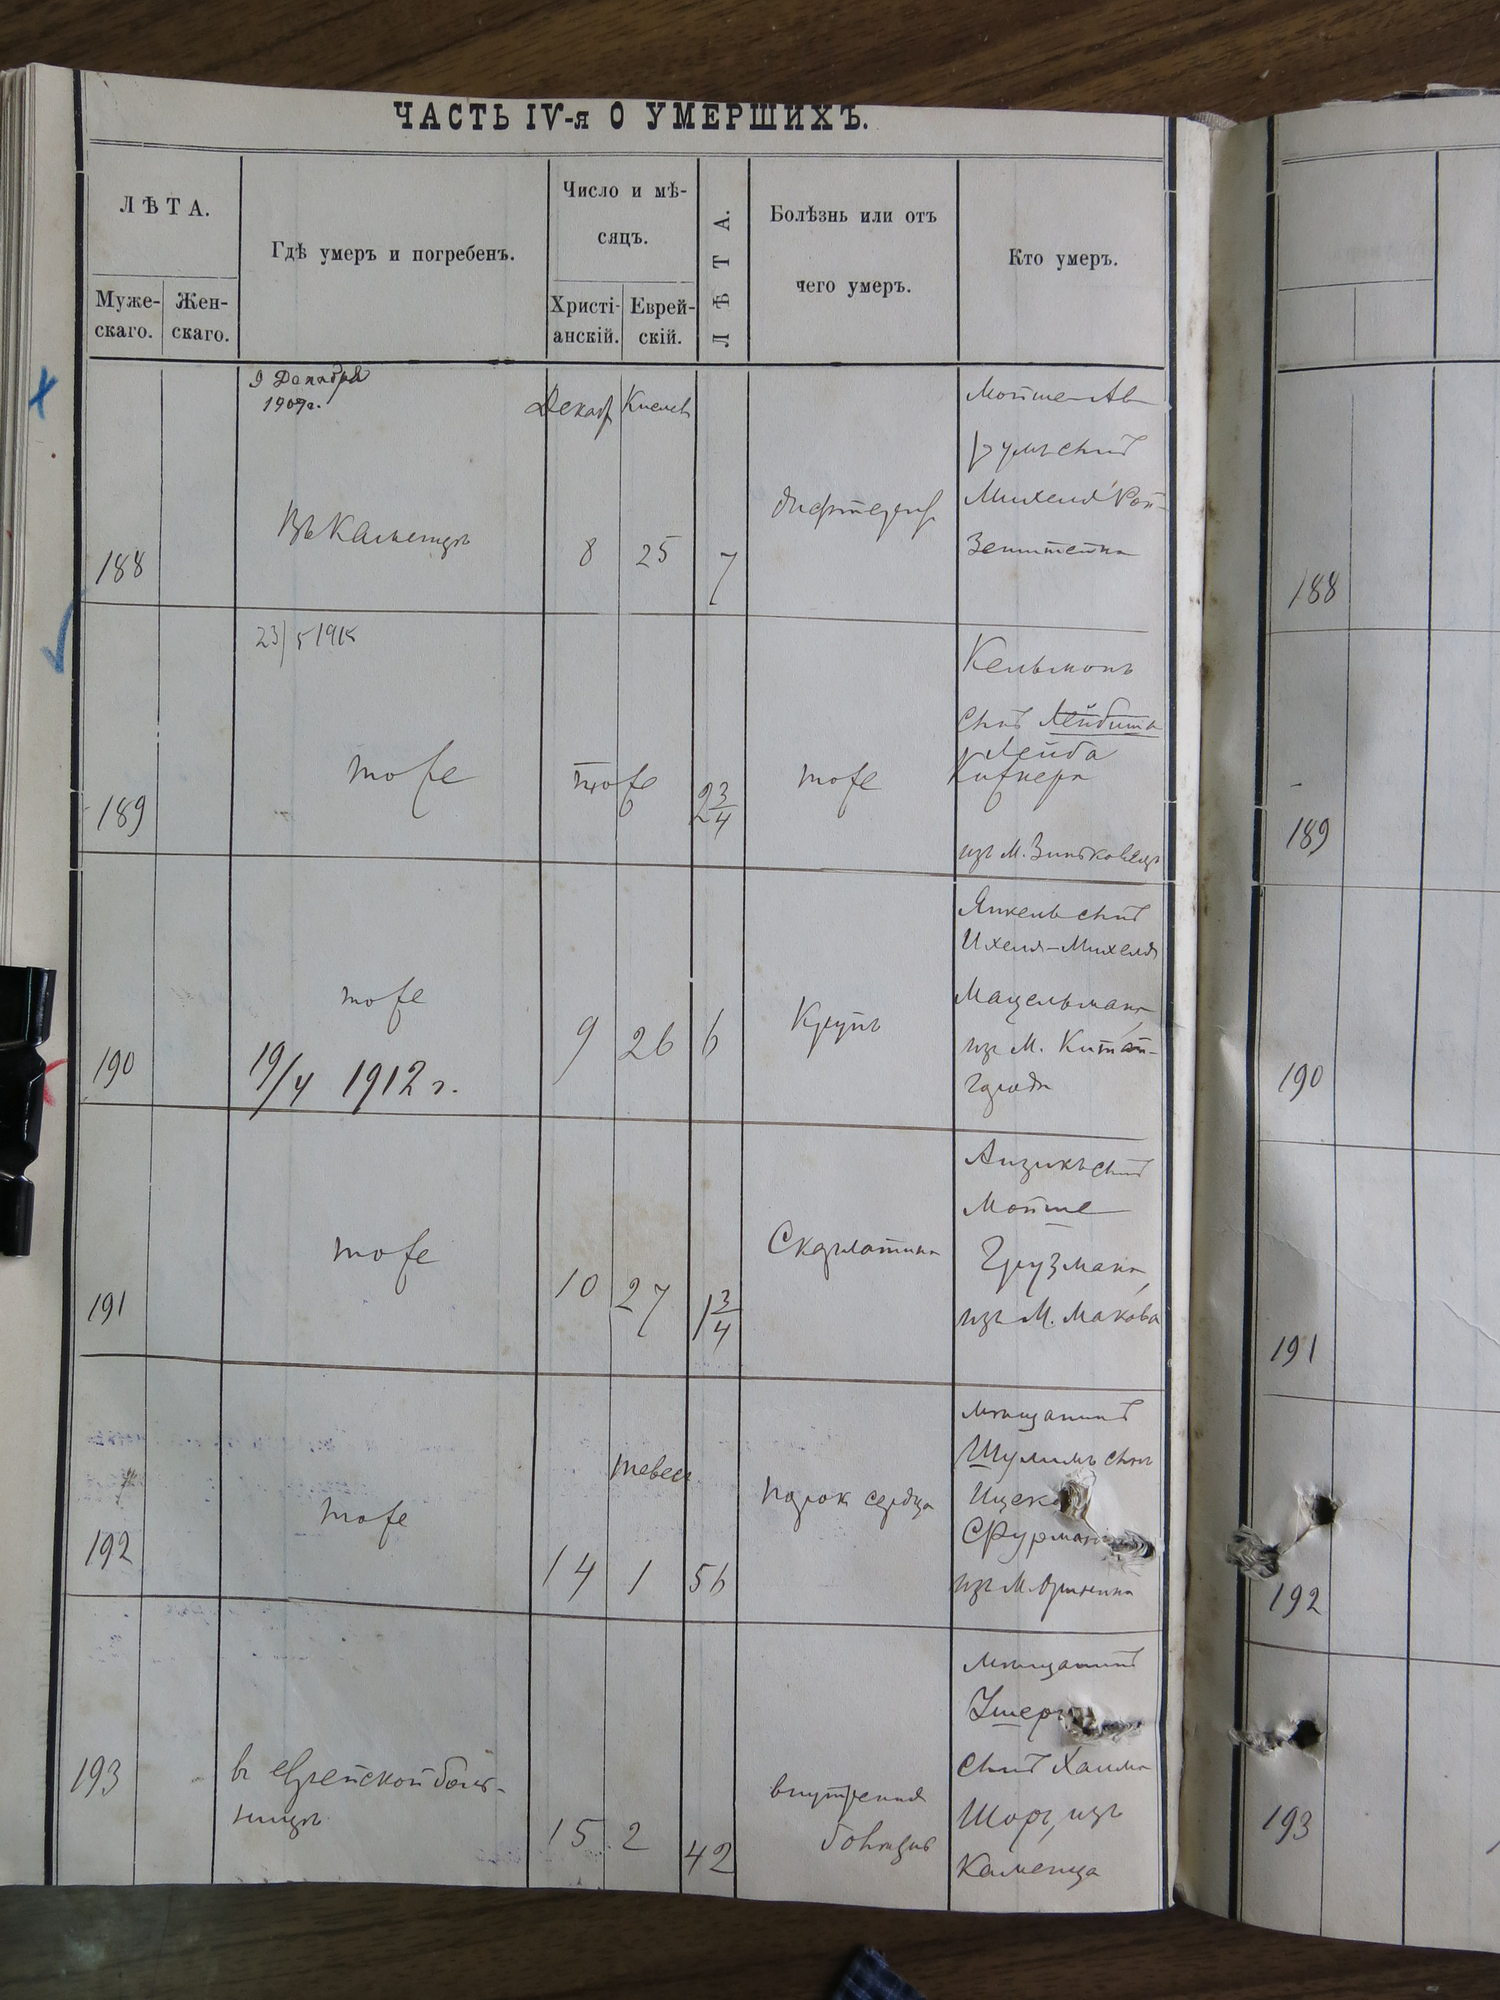 ЧАСТЬ IV-я О УМЕРШИХЪ.
ЛѢТА.
Муже-
скаго.
Жен-
скаго.
Гдѣ умеръ и погребенъ.
Число и мѣ-
сяцъ.
Христі-
анскій.
Еврей-
скій.
ЛѢТА.
Болѣзнь или отъ
чего умеръ.
Кто умеръ.
188
9 Декабря
1909г.
Въ Каменцѣ
Декабр
8
Кислев
25
7
дифтерит
Мойше-Ав
румъ сынъ
Михеля Рой-
зенштейна
188
189
23/5 1915
тоже
тоже
2 3/4
тоже
Кельманъ
сынъ Лейбиша
Лейба
из М. Зиньковецъ
189
190
тоже
19/4 1912 г.
9
26
6
Крупъ
Янкель сынъ
Ихеля-Михеля
Мацельмана,
изъ М. Китай-
города
190
191
тоже
10
27
1 3/4
Скарлатина
Аизикъ сынъ
Мойше
Грузмана,
изъ М. Макова
191
192
тоже
14
тевес
1
56
порок сердца
мѣщанинъ
Шулимъ сынъ
Ицека
Фурмана
изъ М. Орынина
192
193
в еврейской боль-
ницѣ
15
2
42
внутренняя
болезнь
мѣщанинъ
Ушеръ
сынъ Хаима
Шоръ, изъ
Каменца
193